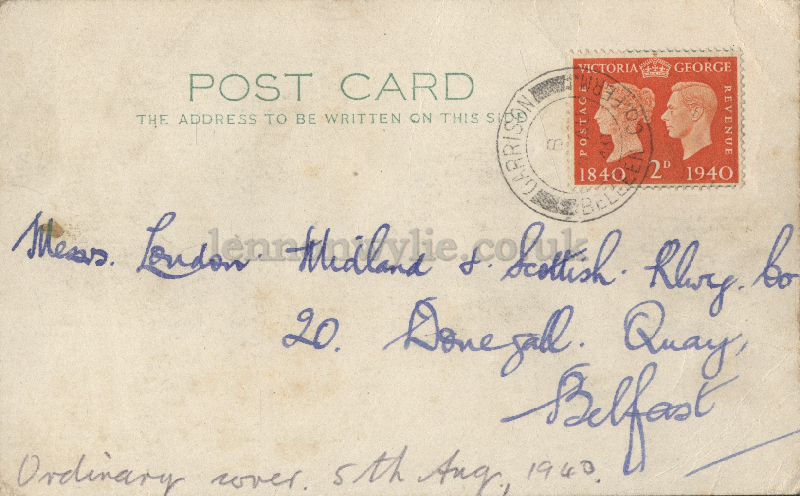 POST CARD
THE ADDRESS TO BE WRITTEN ON THIS SIDE
VICTORIA GEORGE
POSTAGE
REVENUE
1840 2D 1940
GARRISON
BELLEEK
CO. FERM
lennonwylie.co.uk
Messrs. London. Midland & Scottish. Rlwy. Co
20. Donegall. Quay,
Belfast
Ordinary cover. 5th Aug, 1940.